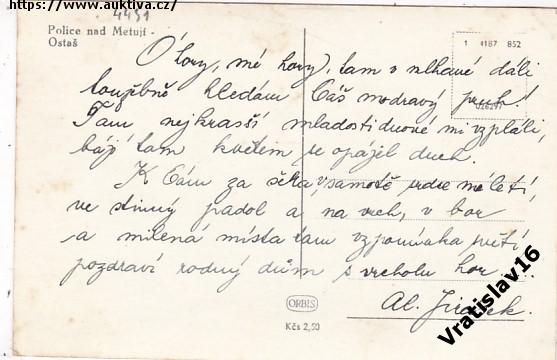 https://www.auktiva.cz/
4491
Police nad Metují -
Ostaš
1 4187 852
Ó hory, mé hory, tam v mlhavé dáli
toužebně hledám Váš modravý pruh!
Tam nejkrasší mladosti dnové mi vzpláli,
báj tam květem se opájel duch.
K Vám za světla, v samotě srdce mé letí,
ve stinný padol a na vrch, v bor
a milená místa tam vzpomínka světí
pozdraví rodný dům s vrcholu hor...
Al. Jirásek.
ORBIS
Kčs 2,50
Vratislav16